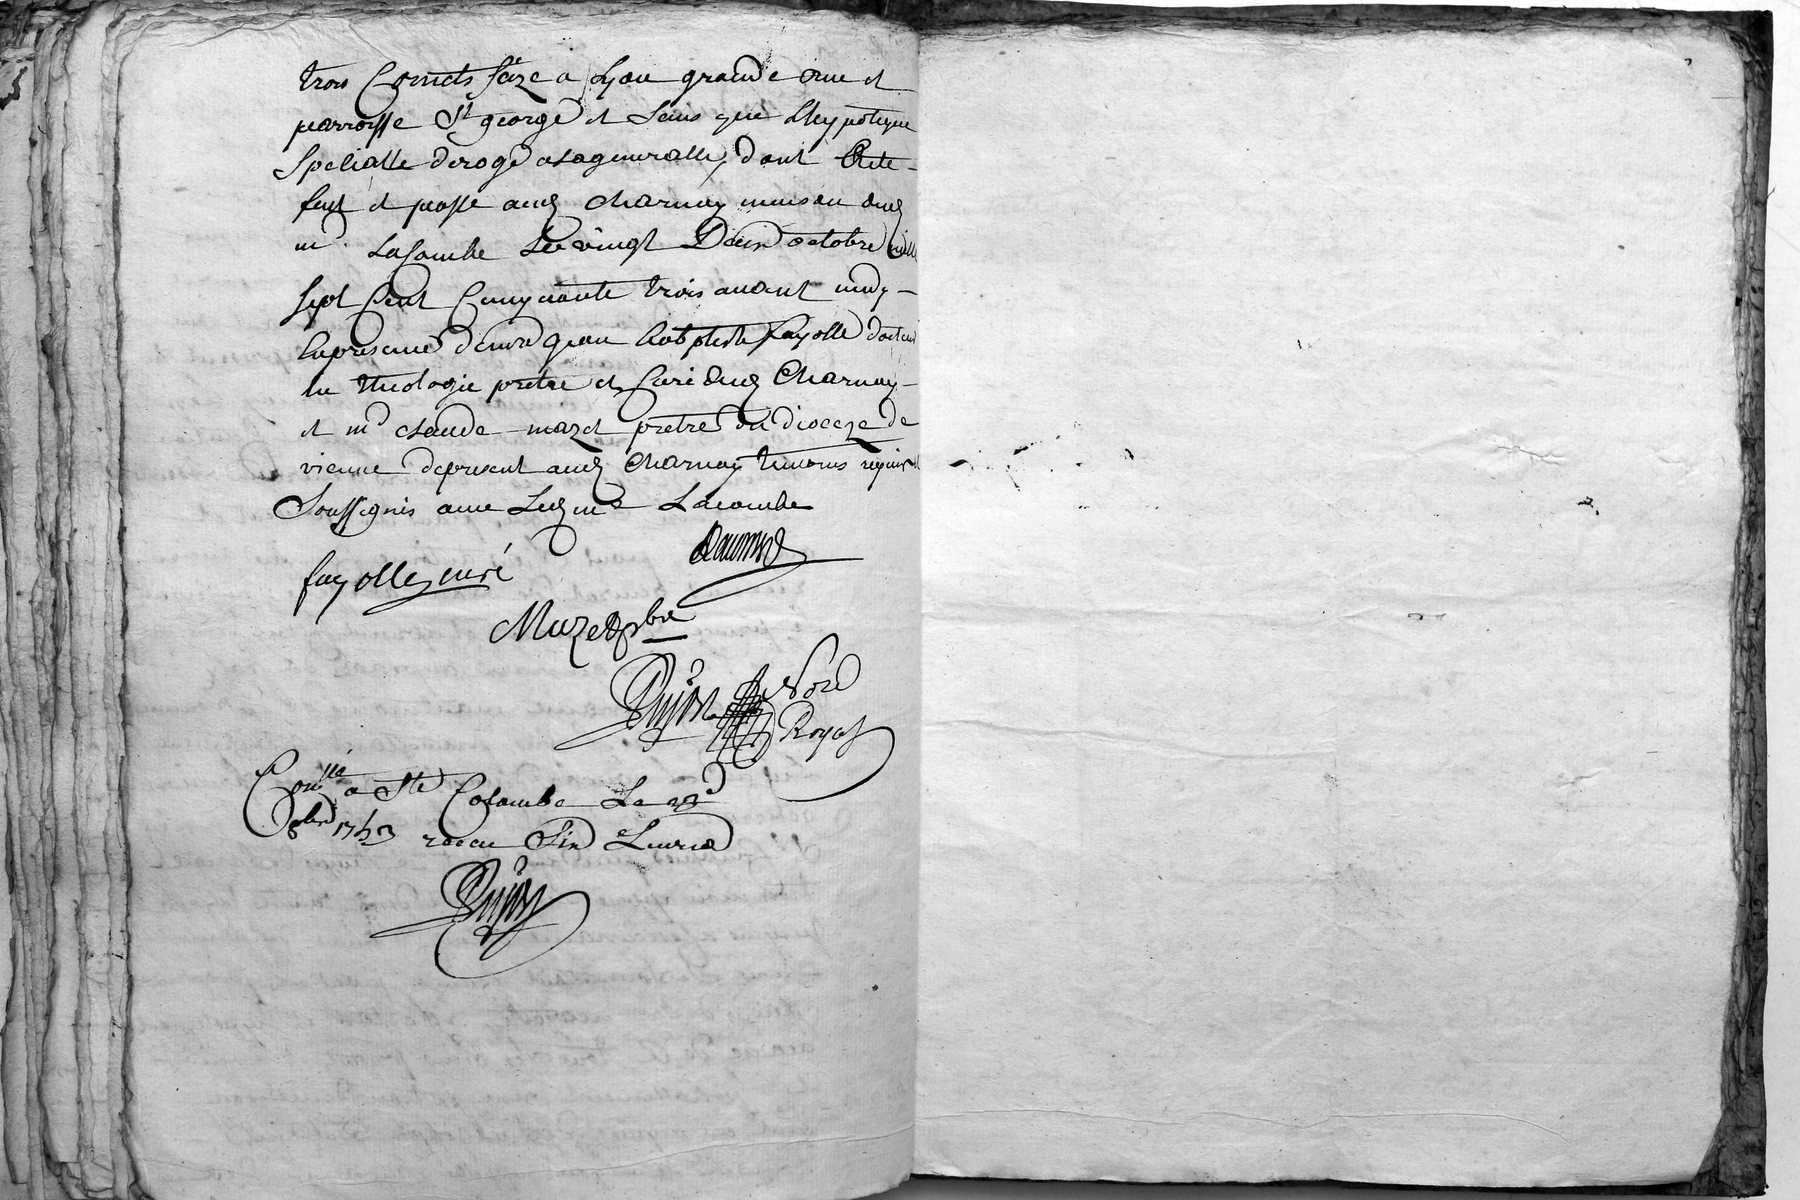 trois Cornets size a Lyon grande rue et
parroisse St george et sans que Lhypoteque
Specialle deroge a la generalle, dont acte
fait et passé aud Charnay maison dud
m. Lacombe Le vingt Deux octobre mille
sept Cent Cinquante trois avant midy
En presence de mre jean baptiste fayolle docteur
en theologie pretre et Curé dud Charnay
et mre claude mazet pretre du dioceze de
vienne de present aud Charnay temoins requis et
Soussignés avec Led mr Lacombe
fayolle curé
Mazet pbre
Dujast Nore
Royal
Conlle a Ste Colombe Le
8bre 1753 recu Six Livres
Dujast